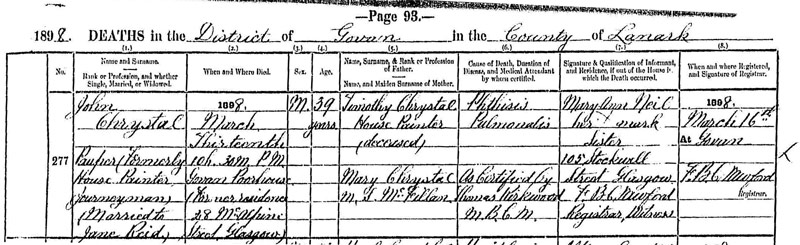 —Page 93.—
1898. DEATHS in the District of Govan in the County of Lanark
(1.) (2.) (3.) (4.) (5.) (6.) (7.) (8.)
No.
Name and Surname.
Rank or Profession, and whether Single, Married, or Widowed.
When and Where Died.
Sex.
Age.
Name, Surname, & Rank or Profession of Father.
Name, and Maiden Surname of Mother.
Cause of Death, Duration of Disease, and Medical Attendant by whom certified.
Signature & Qualification of Informant, and Residence, if out of the House in which the Death occurred.
When and where Registered, and Signature of Registrar.
277
John
Chrystal
Pauper (formerly
House Painter,
Journeyman)
(Married to
Jane Reid)
1898.
March
Thirteenth
10h. 30m. P.M.
Govan Poorhouse
(Former residence
38 McAlpine
Street Glasgow)
M.
39
years
Timothy Chrystal
House Painter
(deceased)
Mary Chrystal
M. S.
Phthisis
Pulmonalis
As Certified by
Thomas Kirkwood
M.B.C.M.
Mary Ann Neil
her x mark
Sister
105 Stockwell
Street Glasgow
F. B. C. Mewford
Registrar, Witness
1898.
March 16th
At Govan
F. B. C. Mewford
Registrar.